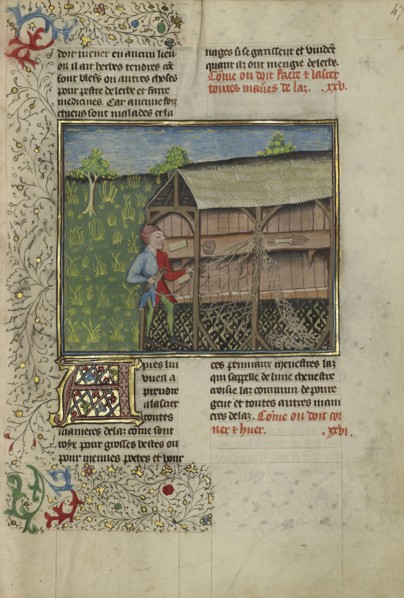 47
doit mener en aucun lieu
ou il ait herbes tendres c͠e
sont blefs ou autres choses
pour pestre de lerbe et faire
medicines. Car aucune foiz
chiens sont malades et sa
nages si se garissent et vuident
quant ilz ont mengie de lerbe.
Co͠me on doit faire & lascer
toutes manie͠s de laz. .xxv.
Apres lui
vueil a
prendre
a lascier
toutes
manieres de laz co͠me sont
roys pour grosses bestes ou
pour menues poches et pour
ces penniaux chenestres laz
qui sappelle de lune chenestre
aussi laz commun de pour
gent et toutes autres mani
eres de laz. Co͠me on doit cor
ner & huer. .xxvi.